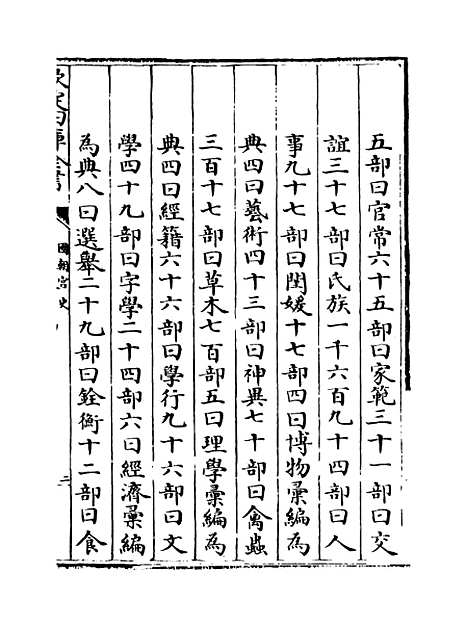 五部曰官常六十五部曰家範三十一部曰交
誼三十七部曰氏族一千六百九十四部曰人
事九十七部曰閨媛十七部四曰博物彙編為
典四曰藝術四十三部曰神異七十部曰禽蟲
三百十七部曰草木七百部五曰理學彙編為
典四曰經籍六十六部曰學行九十六部曰文
學四十九部曰字學二十四部六曰經濟彙編
為典八曰選舉二十九部曰銓衡十二部曰食
欽定四庫全書
國朝宮史